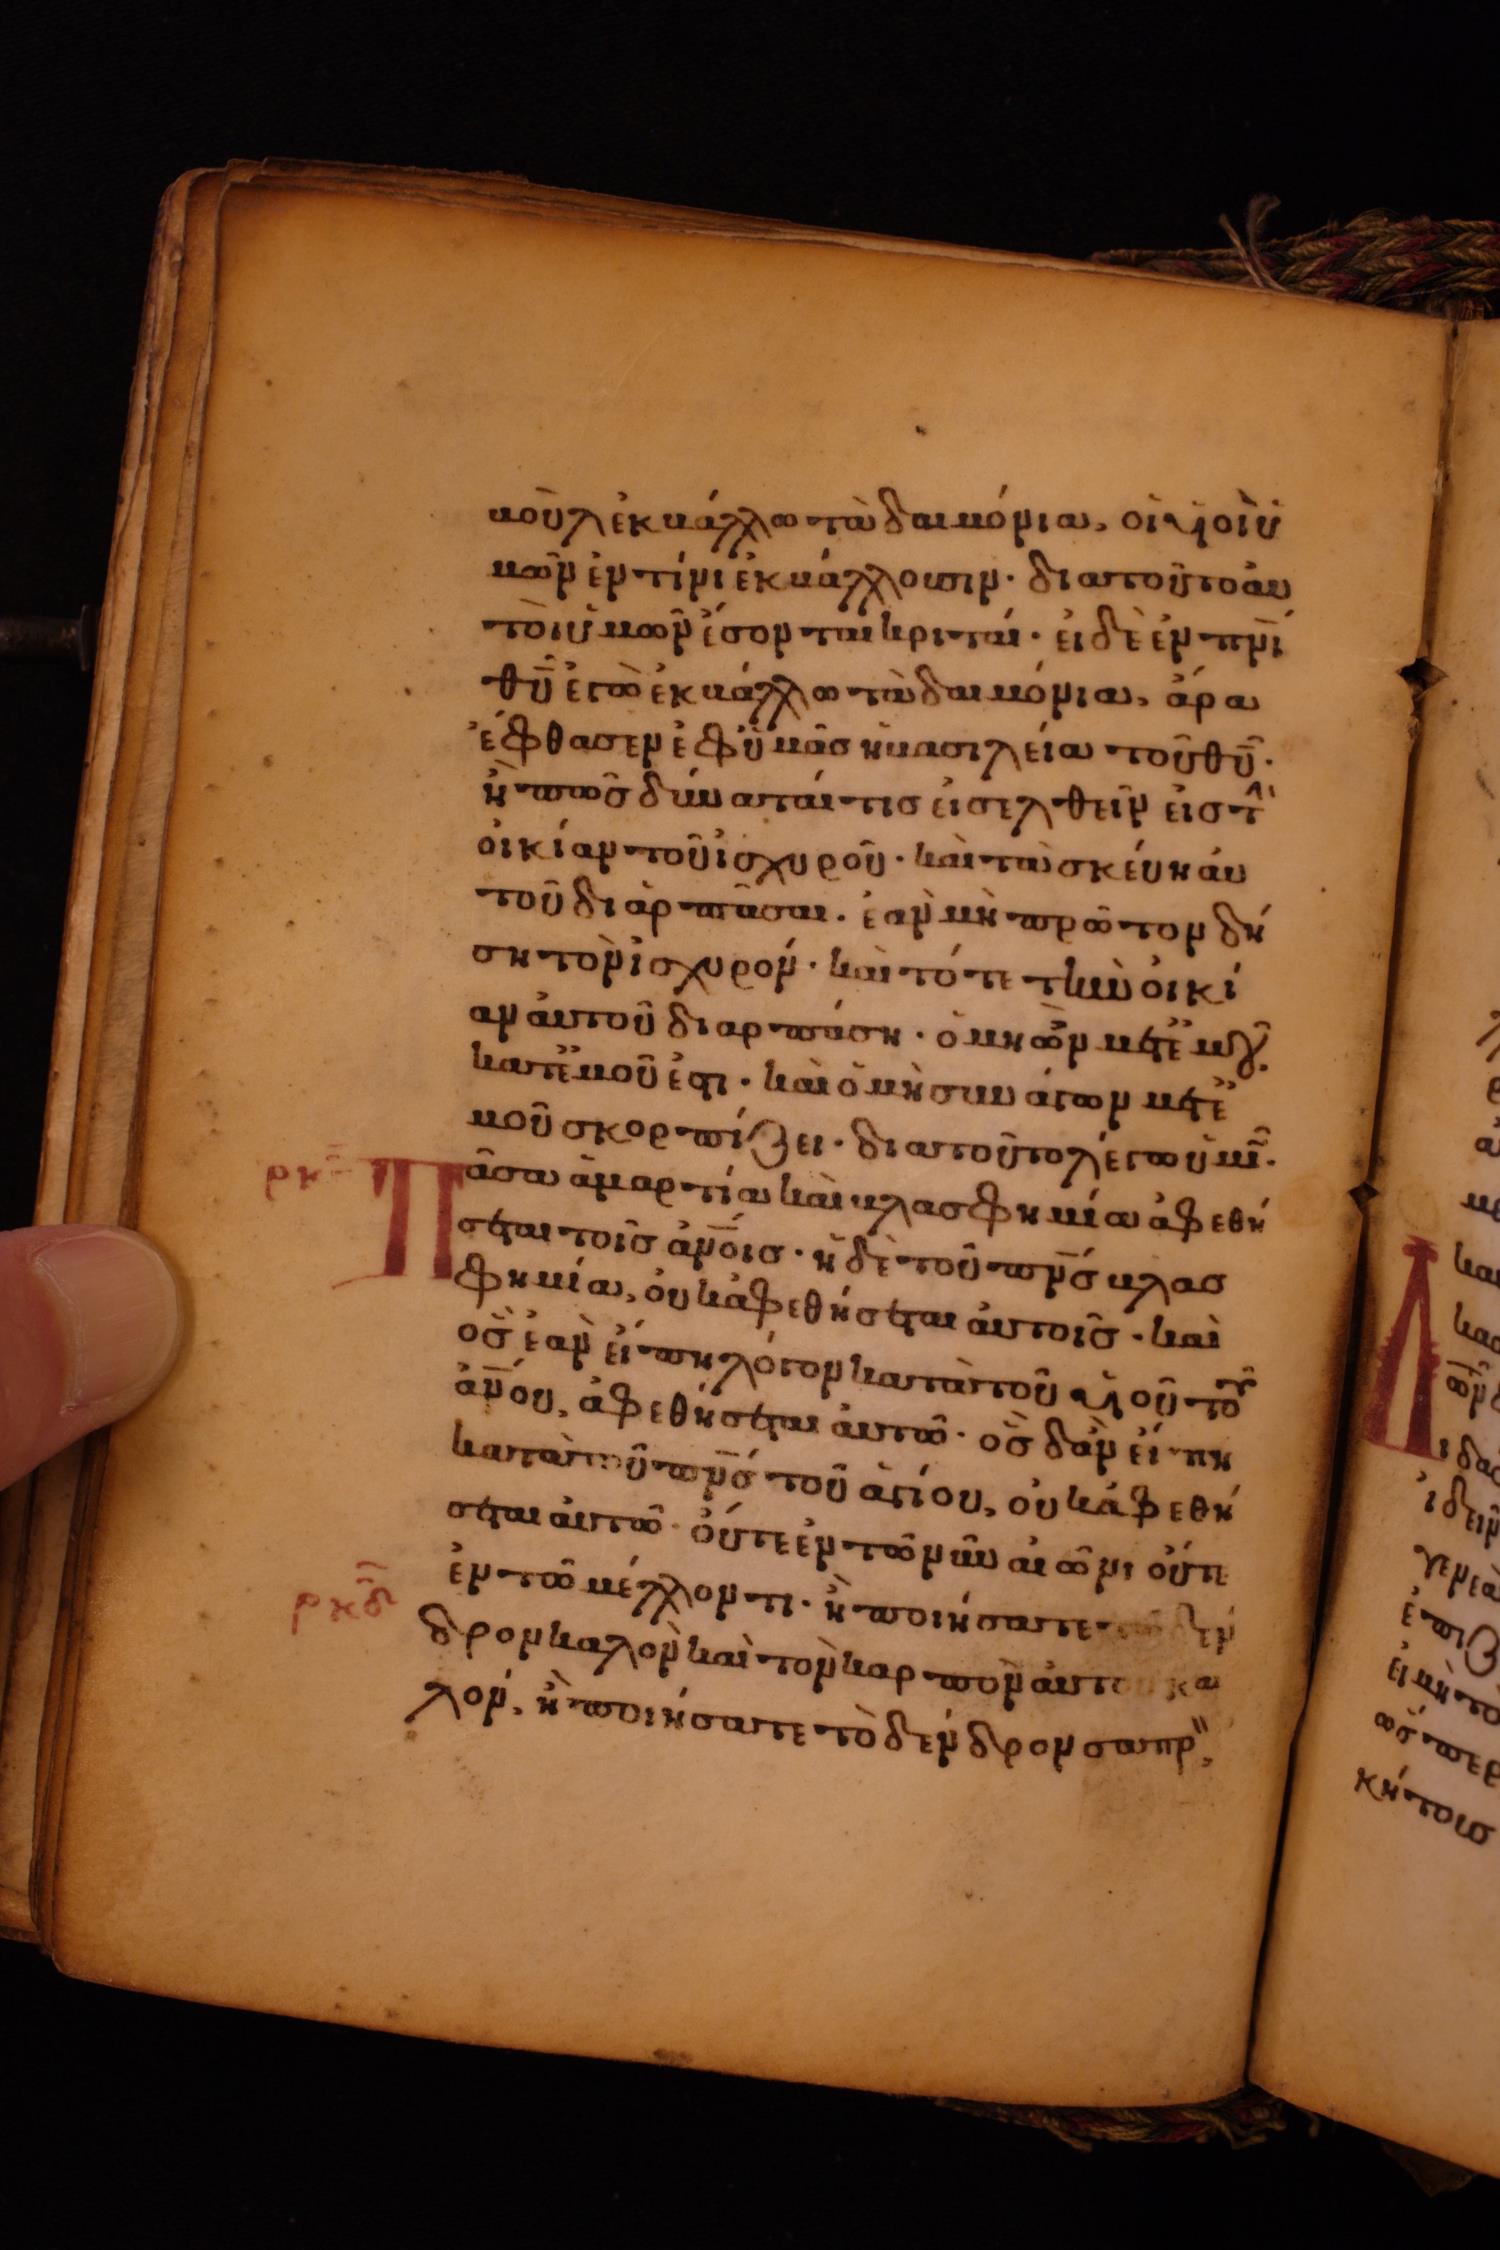 βοὺλ ἐκβάλλω τὰ δαιμόνια, οἱ υἱοὶ ὑ
μῶν ἐν τίνι ἐκβάλλουσιν· διατοῦτο ἀυ
τοὶ ὑμῶν ἔσονται κριταί· εἰ δὲ ἐν πνι
θυ ἐγὼ ἐκβάλλω τὰ δαιμόνια, ἄρα
ἔφθασεν ἐφ ὑμᾶς ἡ βασιλεία τοῦ θυ·
ἢ πῶς δύναται τις εἰσελθεῖν εἰς τὴν
οἰκίαν τοῦ ἰσχυροῦ· καὶ τὰ σκέυη ἀυ
τοῦ διαρπᾶσαι· ἐὰν μὴ πρῶτον δή
ση τὸν ἰσχυρόν· καὶ τότε τὴν οἰκί
αν ἀυτοῦ διαρπάση· ὁ μὴ ὢν μετ ἐμου
κατ ἐμοῦ ἐστι· καὶ ὁ μὴ συνάγων μετ ἐ
μοῦ σκορπίζει· διατοῦτο λέγω ὑμῖν·
ρκγ Πᾶσα ἁμαρτία καὶ βλασφημία ἀφεθή
σεται τοῖς ἀνοις· ἡ δὲ τοῦ πνς βλασ
φημία, οὐκ ἀφεθήσεται ἀυτοῖς· καὶ
ὃς ἐὰν εἴπη λόγον κατὰ τοῦ υἱοῦ τοῦ
ἀνου, ἀφεθήσεται ἀυτῶ· ὃς δἂν εἴπη
κατὰ τοῦ πνς τοῦ ἁγίου, οὐκ ἀφεθή
σεται ἀυτῶ· οὔτε ἐν τῶ νῦν αἰῶνι οὔτε
ἐν τῶ μέλλοντι· ἢ ποιήσατε τὸ δέν
ρκδ
δρον καλὸν καὶ τὸν καρπὸν ἀυτοῦ κα
λόν, ἢ ποιήσατε τὸ δένδρον σαπρ,